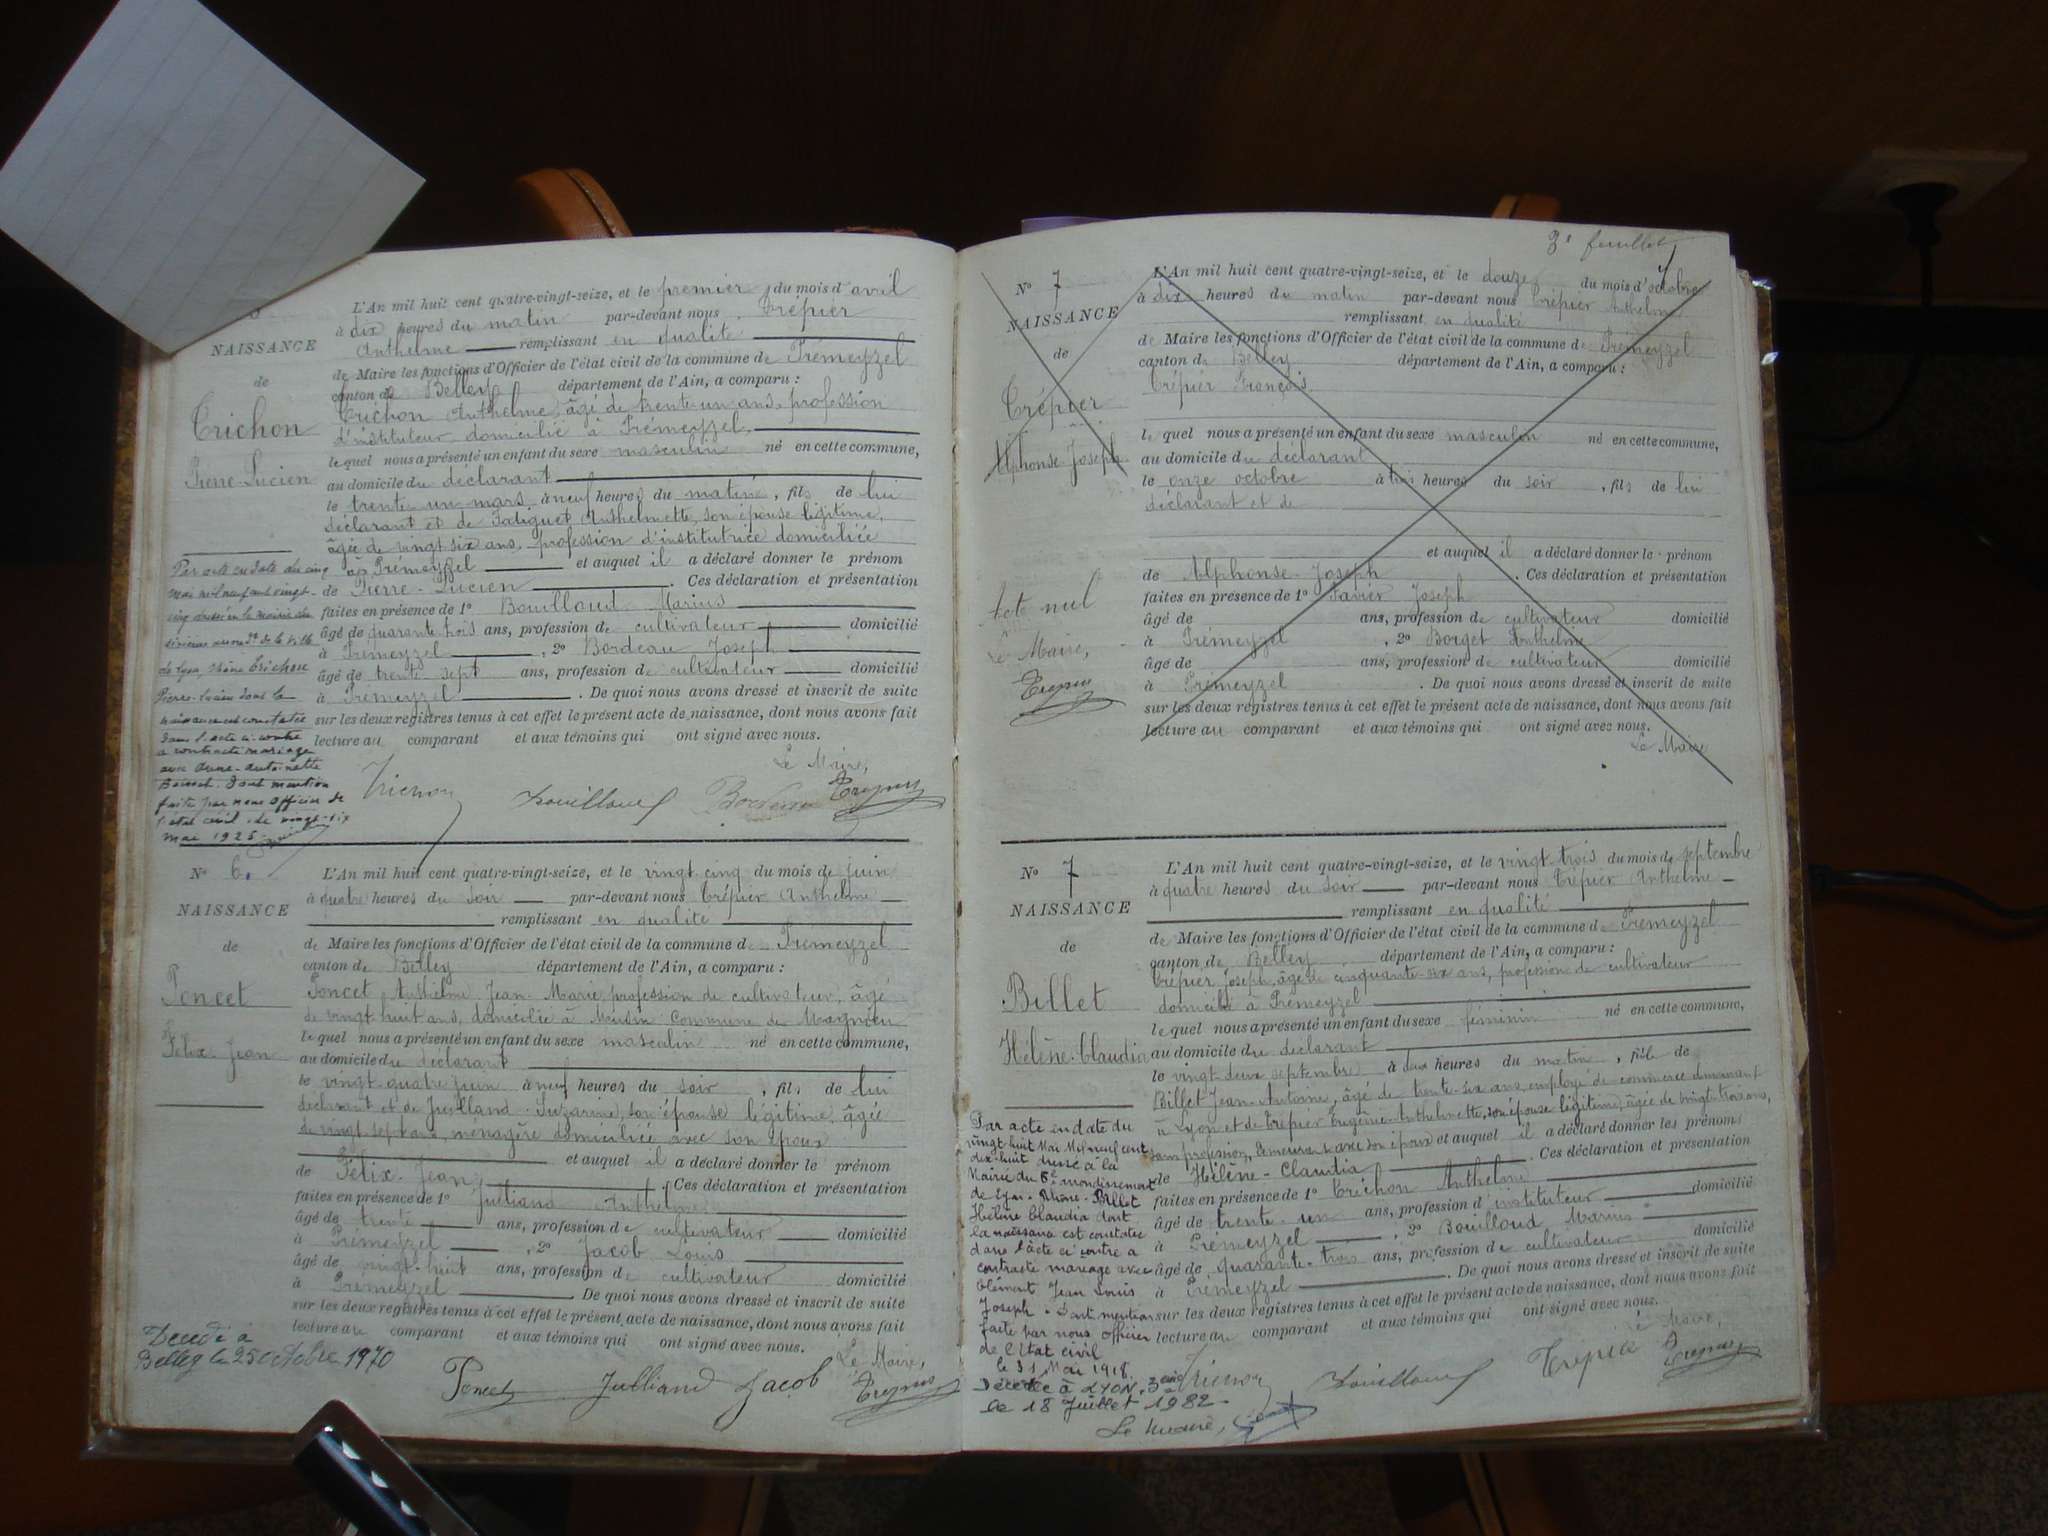 NAISSANCE
de
Trichon
Pierre-Lucien
L'An mil huit cent quatre-vingt-seize, et le premier du mois d'avril
à dix heures du matin par-devant nous Trépier
Anthelme remplissant en qualité
de Maire les fonctions d'Officier de l'état civil de la commune de Prémeyzel
canton de Belley département de l'Ain, a comparu :
Trichon Anthelme, âgé de trente-un ans, profession
d'instituteur, domicilié à Prémeyzel,
lequel nous a présenté un enfant du sexe masculin né en cette commune,
au domicile du déclarant
le trente-un mars à neuf heures du matin, fils de lui
déclarant et de Anthelmette, son épouse légitime,
âgée de vingt six ans, profession d'institutrice domiciliée
à Prémeyzel et auquel il a déclaré donner le prénom
de Pierre-Lucien. Ces déclaration et présentation
faites en présence de 1° Bouilloud Marius
âgé de quarante trois ans, profession de cultivateur domicilié
à Prémeyzel, 2° Bordeau Joseph
âgé de trente sept ans, profession de cultivateur domicilié
à Prémeyzel. De quoi nous avons dressé et inscrit de suite
sur les deux registres tenus à cet effet le présent acte de naissance, dont nous avons fait
lecture au comparant et aux témoins qui ont signé avec nous.
Le Maire,
Trichon Bouilloud Bordeau
Par acte en date du cinq
mai mil neuf cent vingt-
cinq dressé en la mairie du
de la ville
de Lyon, Rhône Trichon
Pierre-Lucien dont la
naissance est constatée
dans l'acte ci-contre
a contracté mariage
avec Antoinette
Dont mention
faite par nous officier de
l'état civil, le vingt-six
mai 1925
N° 6.
NAISSANCE
de
Poncet
Félix-Jean
L'An mil huit cent quatre-vingt-seize, et le vingt cinq du mois de juin
à quatre heures du soir par-devant nous Trépier Anthelme
remplissant en qualité
de Maire les fonctions d'Officier de l'état civil de la commune de Prémeyzel
canton de Belley département de l'Ain, a comparu :
Poncet Anthelme Jean-Marie, profession de cultivateur, âgé
de vingt huit ans, domicilié à Commune de Magnieu
lequel nous a présenté un enfant du sexe masculin né en cette commune,
au domicile du déclarant
le vingt-quatre juin à neuf heures du soir, fils de lui
déclarant et de Juilland Suzanne, son épouse légitime, âgée
de vingt sept ans, ménagère domiciliée avec son époux
et auquel il a déclaré donner le prénom
de Félix-Jean. Ces déclaration et présentation
faites en présence de 1° Juilland Anthelme
âgé de trente ans, profession de cultivateur domicilié
à Prémeyzel, 2° Jacob Louis
âgé de vingt-huit ans, profession de cultivateur domicilié
à Prémeyzel. De quoi nous avons dressé et inscrit de suite
sur les deux registres tenus à cet effet le présent acte de naissance, dont nous avons fait
lecture au comparant et aux témoins qui ont signé avec nous.
Le Maire,
Poncet Julliand Jacob
Décédé à
Belley le 25 octobre 1970
3e feuillet
N° 7
NAISSANCE
de
Trépier
Alphonse-Joseph
L'An mil huit cent quatre-vingt-seize, et le douze du mois d'octobre
à dix heures du matin par-devant nous Trépier Anthelme
remplissant en qualité
de Maire les fonctions d'Officier de l'état civil de la commune de Prémeyzel
canton de Belley département de l'Ain, a comparu :
Trépier François
lequel nous a présenté un enfant du sexe masculin né en cette commune,
au domicile du déclarant
le onze octobre à trois heures du soir, fils de lui
déclarant et de
et auquel il a déclaré donner le prénom
de Alphonse-Joseph. Ces déclaration et présentation
faites en présence de 1° Joseph
âgé de ans, profession de cultivateur domicilié
à Prémeyzel, 2° Borget Anthelme
âgé de ans, profession de cultivateur domicilié
à Prémeyzel. De quoi nous avons dressé et inscrit de suite
sur les deux registres tenus à cet effet le présent acte de naissance, dont nous avons fait
lecture au comparant et aux témoins qui ont signé avec nous.
Le Maire
Acte nul
Le Maire,
N° 7
NAISSANCE
de
Billet
Hélène-Claudia
L'An mil huit cent quatre-vingt-seize, et le vingt-trois du mois de septembre
à quatre heures du soir par-devant nous Trépier Anthelme
remplissant en qualité
de Maire les fonctions d'Officier de l'état civil de la commune de Prémeyzel
canton de Belley département de l'Ain, a comparu :
Trépier Joseph, âgé de cinquante-six ans, profession de cultivateur
domicilié à Prémeyzel
lequel nous a présenté un enfant du sexe féminin né en cette commune,
au domicile du déclarant
le vingt-deux septembre à deux heures du matin, fille de
Billet Jean-Antoine, âgé de trente-six ans, employé de commerce demeurant
à Lyon et de Trépier Eugénie-Anthelmette, son épouse légitime, âgée de vingt-trois ans,
sans profession, demeurant avec son époux et auquel il a déclaré donner les prénoms
de Hélène-Claudia. Ces déclaration et présentation
faites en présence de 1° Trichon Anthelme
âgé de trente-un ans, profession d'instituteur domicilié
à Prémeyzel, 2° Bouilloud Marius
âgé de quarante-trois ans, profession de cultivateur domicilié
à Prémeyzel. De quoi nous avons dressé et inscrit de suite
sur les deux registres tenus à cet effet le présent acte de naissance, dont nous avons fait
lecture au comparant et aux témoins qui ont signé avec nous.
Le Maire,
Trichon Bouilloud Trépier
Par acte en date du
vingt huit Mai Mil neuf cent
dix-huit dressé à la
Mairie du 6e arrondissement
de Lyon - Rhône - Billet
Hélène Claudia dont
la naissance est constatée
dans l'acte ci contre a
contracté mariage avec
Clément Jean Louis
Joseph - Dont mention
faite par nous officier
de l'Etat civil
le 31 Mai 1918
Décédée à LYON, 3ème
le 18 Juillet 1982
Le Maire,